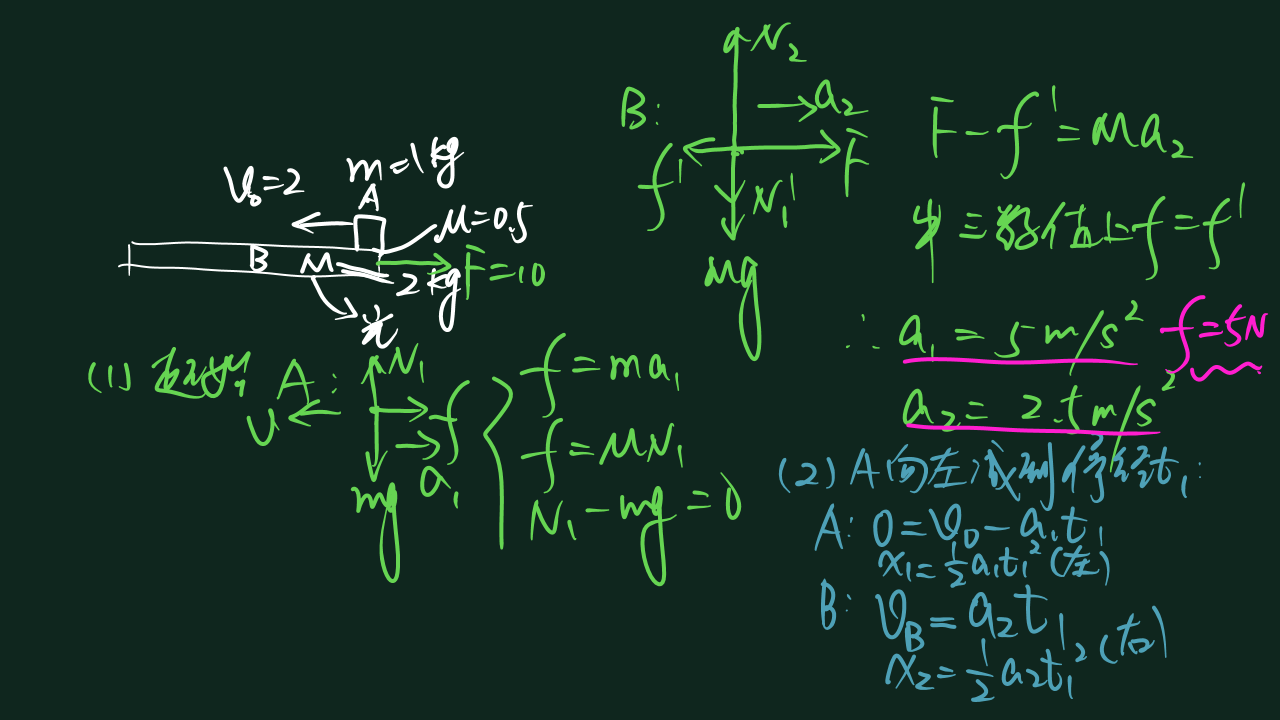 m=1kg
v₀=2
A
μ=0.5
B M
F=10
2kg
光
(1)
A:
N₁
v
f
a₁
mg
f=ma₁
f=μN₁
N₁-mg=0
B:
N₂
a₂
f'
F
N₁'
Mg
F-f'=Ma₂
牛三 数值上f=f'
∴ a₁=5m/s²
f=5N
a₂=2.5m/s²
(2) A向左减到停经t₁:
A: 0=v₀-a₁t₁
x₁=½a₁t₁²(左)
B: v_B=a₂t₁
x₂=½a₂t₁²(右)